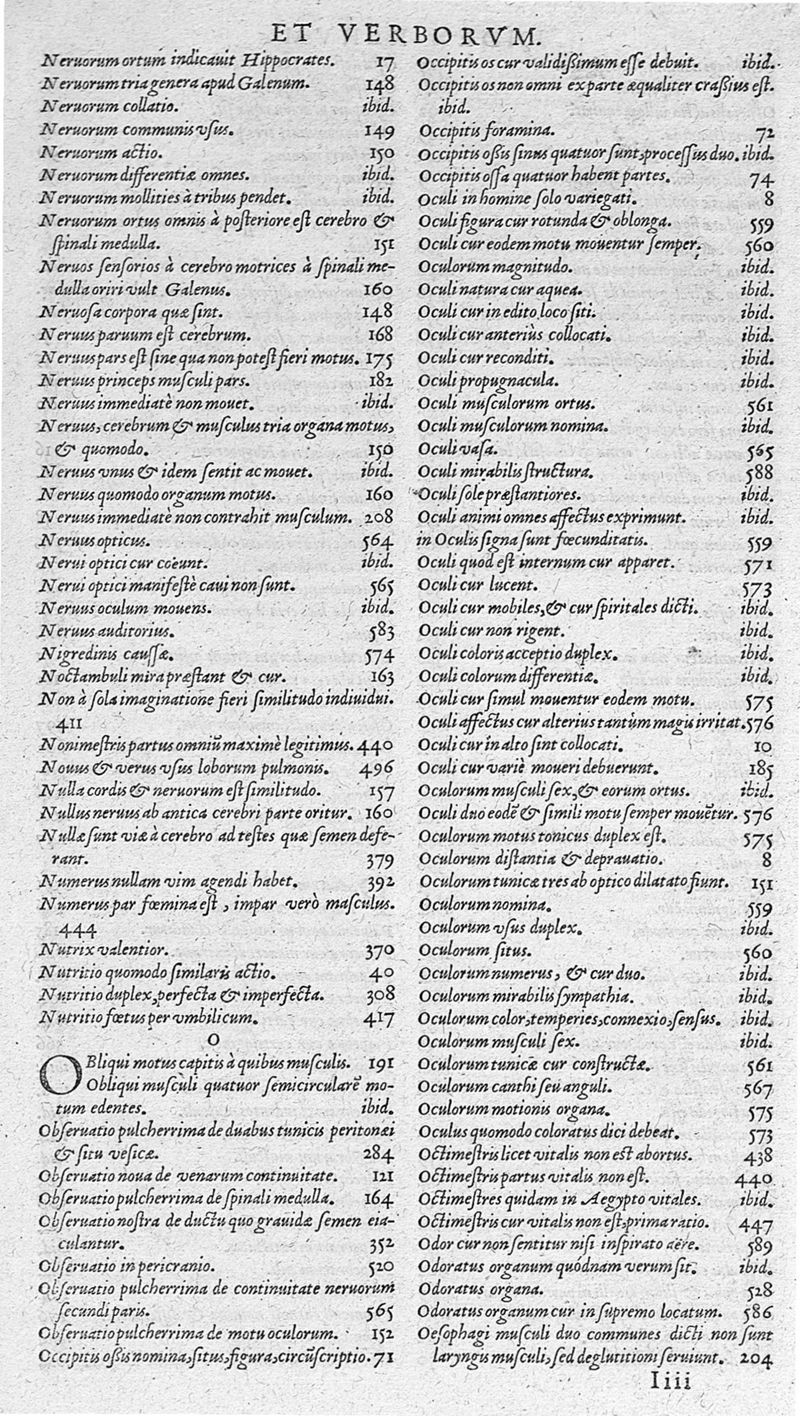 ET VERBORVM.
Neruorum ortum indicauit Hippocrates. 17
Neruorum tria genera apud Galenum. 148
Neruorum collatio. ibid.
Neruorum communis vsus. 149
Neruorum actio. 150
Neruorum differentiæ omnes. ibid.
Neruorum mollities à tribus pendet. ibid.
Neruorum ortus omnis à posteriore est cerebro &
spinali medulla. 151
Neruos sensorios à cerebro motrices à spinali me-
dulla oriri vult Galenus. 160
Neruosa corpora quæ sint. 148
Neruus paruum est cerebrum. 168
Neruus pars est sine qua non potest fieri motus. 175
Neruus princeps musculi pars. 182
Neruus immediatè non mouet. ibid.
Neruus, cerebrum & musculus tria organa motus,
& quomodo. 150
Neruus vnus & idem sentit ac mouet. ibid.
Neruus quomodo organum motus. 160
Neruus immediatè non contrahit musculum. 208
Neruus opticus. 564
Nerui optici cur coëunt. ibid.
Nerui optici manifestè caui non sunt. 565
Neruus oculum mouens. ibid.
Neruus auditorius. 583
Nigredinis caussæ. 574
Noctambuli mira præstant & cur. 163
Non à sola imaginatione fieri similitudo indiuidui.
411
Nonimestris partus omniũ maximè legitimus. 440
Nouus & verus vsus loborum pulmonis. 496
Nulla cordis & neruorum est similitudo. 157
Nullus neruus ab antica cerebri parte oritur. 160
Nullæ sunt viæ à cerebro ad testes quæ semen defe-
rant. 379
Numerus nullam vim agendi habet. 392
Numerus par fœmina est, impar verò masculus.
444
Nutrix valentior. 370
Nutritio quomodo similaris actio. 40
Nutritio duplex, perfecta & imperfecta. 308
Nutritio fœtus per vmbilicum. 417
O
OBliqui motus capitis à quibus musculis. 191
Obliqui musculi quatuor semicircularẽ mo-
tum edentes. ibid.
Obseruatio pulcherrima de duabus tunicis peritonæi
& situ vesicæ. 284
Obseruatio noua de venarum continuitate. 121
Obseruatio pulcherrima de spinali medulla. 164
Obseruatio nostra de ductu quo grauidæ semen eia-
culantur. 352
Obseruatio in pericranio. 520
Obseruatio pulcherrima de continuitate neruorum
secundi paris. 565
Obseruatio pulcherrima de motu oculorum. 152
Occipitis oßis nomina, situs, figura, circũscriptio. 71
Occipitis os cur validißimum esse debuit. ibid.
Occipitis os non omni ex parte æqualiter craßius est.
ibid.
Occipitis foramina. 72
Occipitis oßis sinus quatuor sunt, processus duo. ibid.
Occipitis ossa quatuor habent partes. 74
Oculi in homine solo variegati. 8
Oculi figura cur rotunda & oblonga. 559
Oculi cur eodem motu mouentur semper. 560
Oculorum magnitudo. ibid.
Oculi natura cur aquea. ibid.
Oculi cur in edito loco siti. ibid.
Oculi cur anteriùs collocati. ibid.
Oculi cur reconditi. ibid.
Oculi propugnacula. ibid.
Oculi musculorum ortus. 561
Oculi musculorum nomina. ibid.
Oculi vasa. 565
Oculi mirabilis structura. 588
Oculi sole præstantiores. ibid.
Oculi animi omnes affectus exprimunt. ibid.
in Oculis signa sunt fœcunditatis. 559
Oculi quod est internum cur apparet. 571
Oculi cur lucent. 573
Oculi cur mobiles, & cur spiritales dicti. ibid.
Oculi cur non rigent. ibid.
Oculi coloris acceptio duplex. ibid.
Oculi colorum differentiæ. ibid.
Oculi cur simul mouentur eodem motu. 575
Oculi affectus cur alterius tantùm magis irritat. 576
Oculi cur in alto sint collocati. 10
Oculi cur variè moueri debuerunt. 185
Oculorum musculi sex, & eorum ortus. ibid.
Oculi duo eodẽ & simili motu semper mouẽtur. 576
Oculorum motus tonicus duplex est. 575
Oculorum distantia & deprauatio. 8
Oculorum tunicæ tres ab optico dilatato fiunt. 151
Oculorum nomina. 559
Oculorum vsus duplex. ibid.
Oculorum situs. 560
Oculorum numerus, & cur duo. ibid.
Oculorum mirabilis sympathia. ibid.
Oculorum color, temperies, connexio, sensus. ibid.
Oculorum musculi sex. ibid.
Oculorum tunicæ cur constructæ. 561
Oculorum canthi seu anguli. 567
Oculorum motionis organa. 575
Oculus quomodo coloratus dici debeat. 573
Octimestris licet vitalis non est abortus. 438
Octimestris partus vitalis non est. 440
Octimestres quidam in Aegypto vitales. ibid.
Octimestris cur vitalis non est, prima ratio. 447
Odor cur non sentitur nisi inspirato aëre. 589
Odoratus organum quódnam verum sit. ibid.
Odoratus organa. 528
Odoratus organum cur in supremo locatum. 586
Oesophagi musculi duo communes dicti non sunt
laryngis musculi, sed deglutitioni seruiunt. 204
Iiii